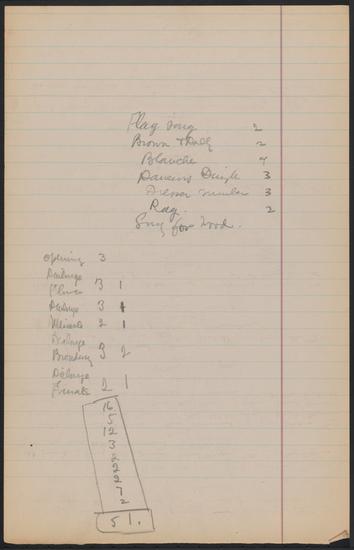 Flag song 2
Brown + 2
Blanche 4
Dancing Single 3
Dresser number 3
Rag. 2
Song for Wood.
Opening 3
3 1
Dialogue 3 1
2 1
Dialogue
Broadway 3 2
Dialogue
Finale 2 1
16
5
12
3
2
2
2
7
2
51.